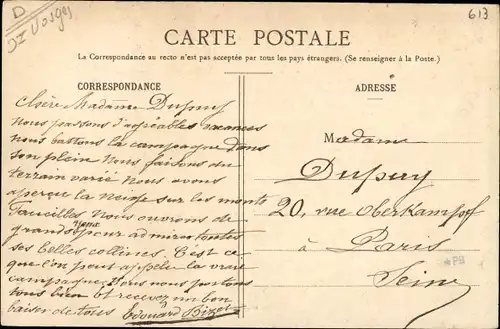 D
Vosges
613
CARTE POSTALE
La Correspondance au recto n'est pas acceptée par tous les pays étrangers. (Se renseigner à la Poste.)
CORRESPONDANCE
Chère Madame Dupuy
Nous passons d'agréables vacances
nous battons la campagne dans
son plein Nous faisons du
terrain varié Nous avons
aperçu la neige sur les monts
Faucilles Nous ouvrons de
grands yeux pour admirer toutes
ses belles collines. C'est ce
que l'on peut appeler la vraie
campagne. Nous nous portons
tous bien et recevez un bon
baiser de tous Edouard Bizet
ADRESSE
Madame
Dupuy
20, rue Oberkampf
à Paris
Seine
*PB